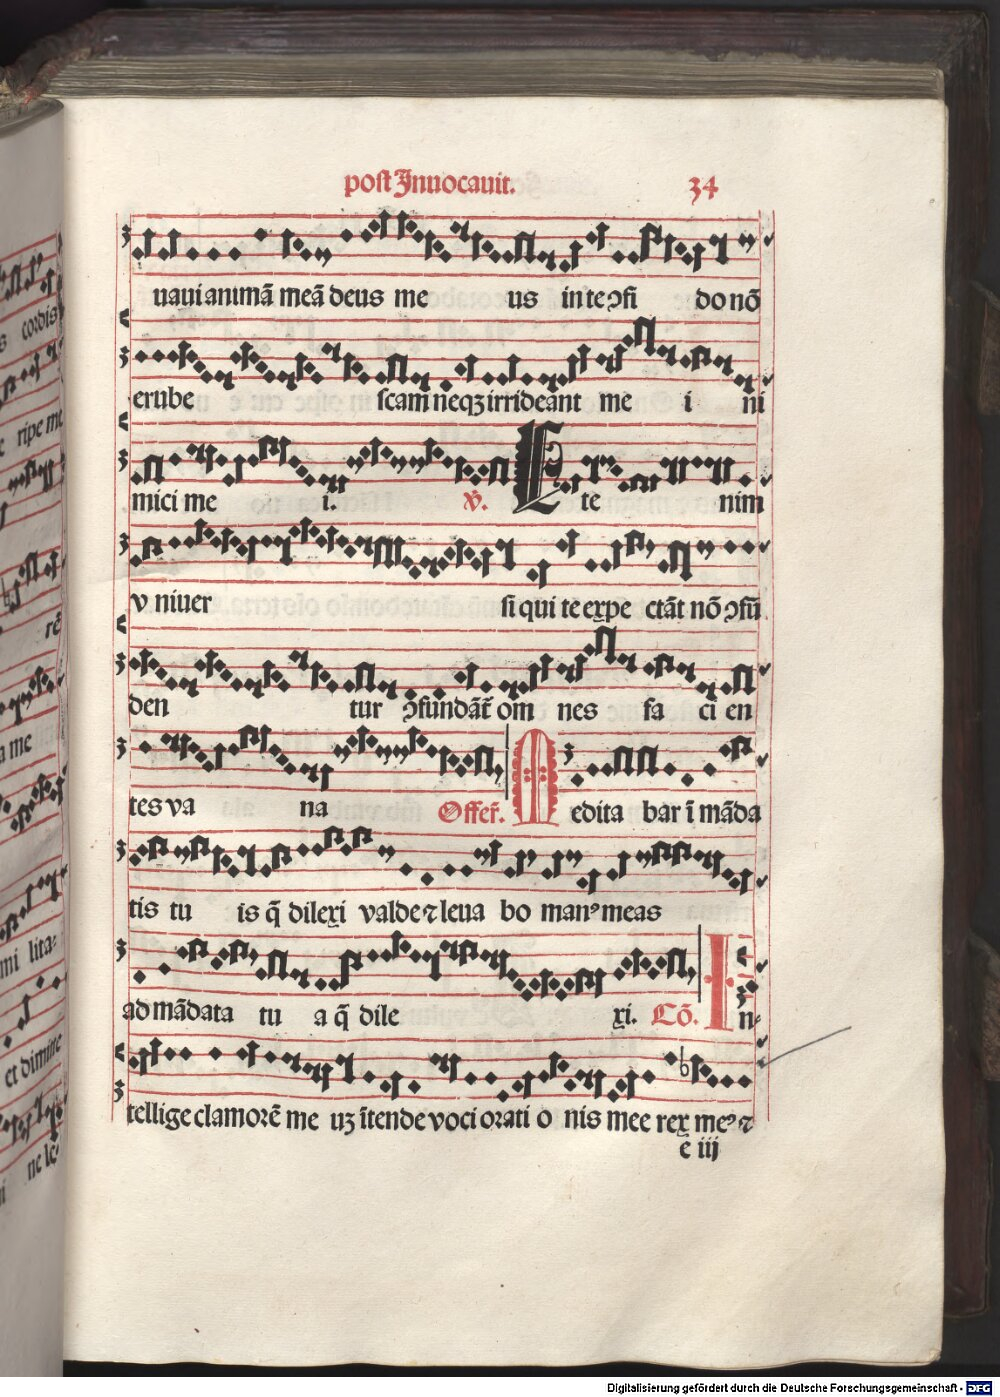 post Jnuocauit. 34
uaui animā meā deus me us in te ↄfi do nō
erube scam neqꝫ irrideant me i ni
mici me i. ℣. Ete nim
vniuer si qui te expe ctāt nō ↄfū
den tur ↄfundāt᷑ om nes fa ci en
tes va na Offer̄. Medita bar ī māda
tis tu is q̄ dilexi valde ⁊ leua bo manꝰ meas
ad mādata tu a q̄ dile xi. Cō. In-
tellige clamorē me uꝫ ītende voci orati o nis mee rex meꝰ ⁊
e iij
s cordis
e ripe me
rē
a me
mi lita-
et dimitte
ne le-
Digitalisierung gefördert durch die Deutsche Forschungsgemeinschaft - DFG